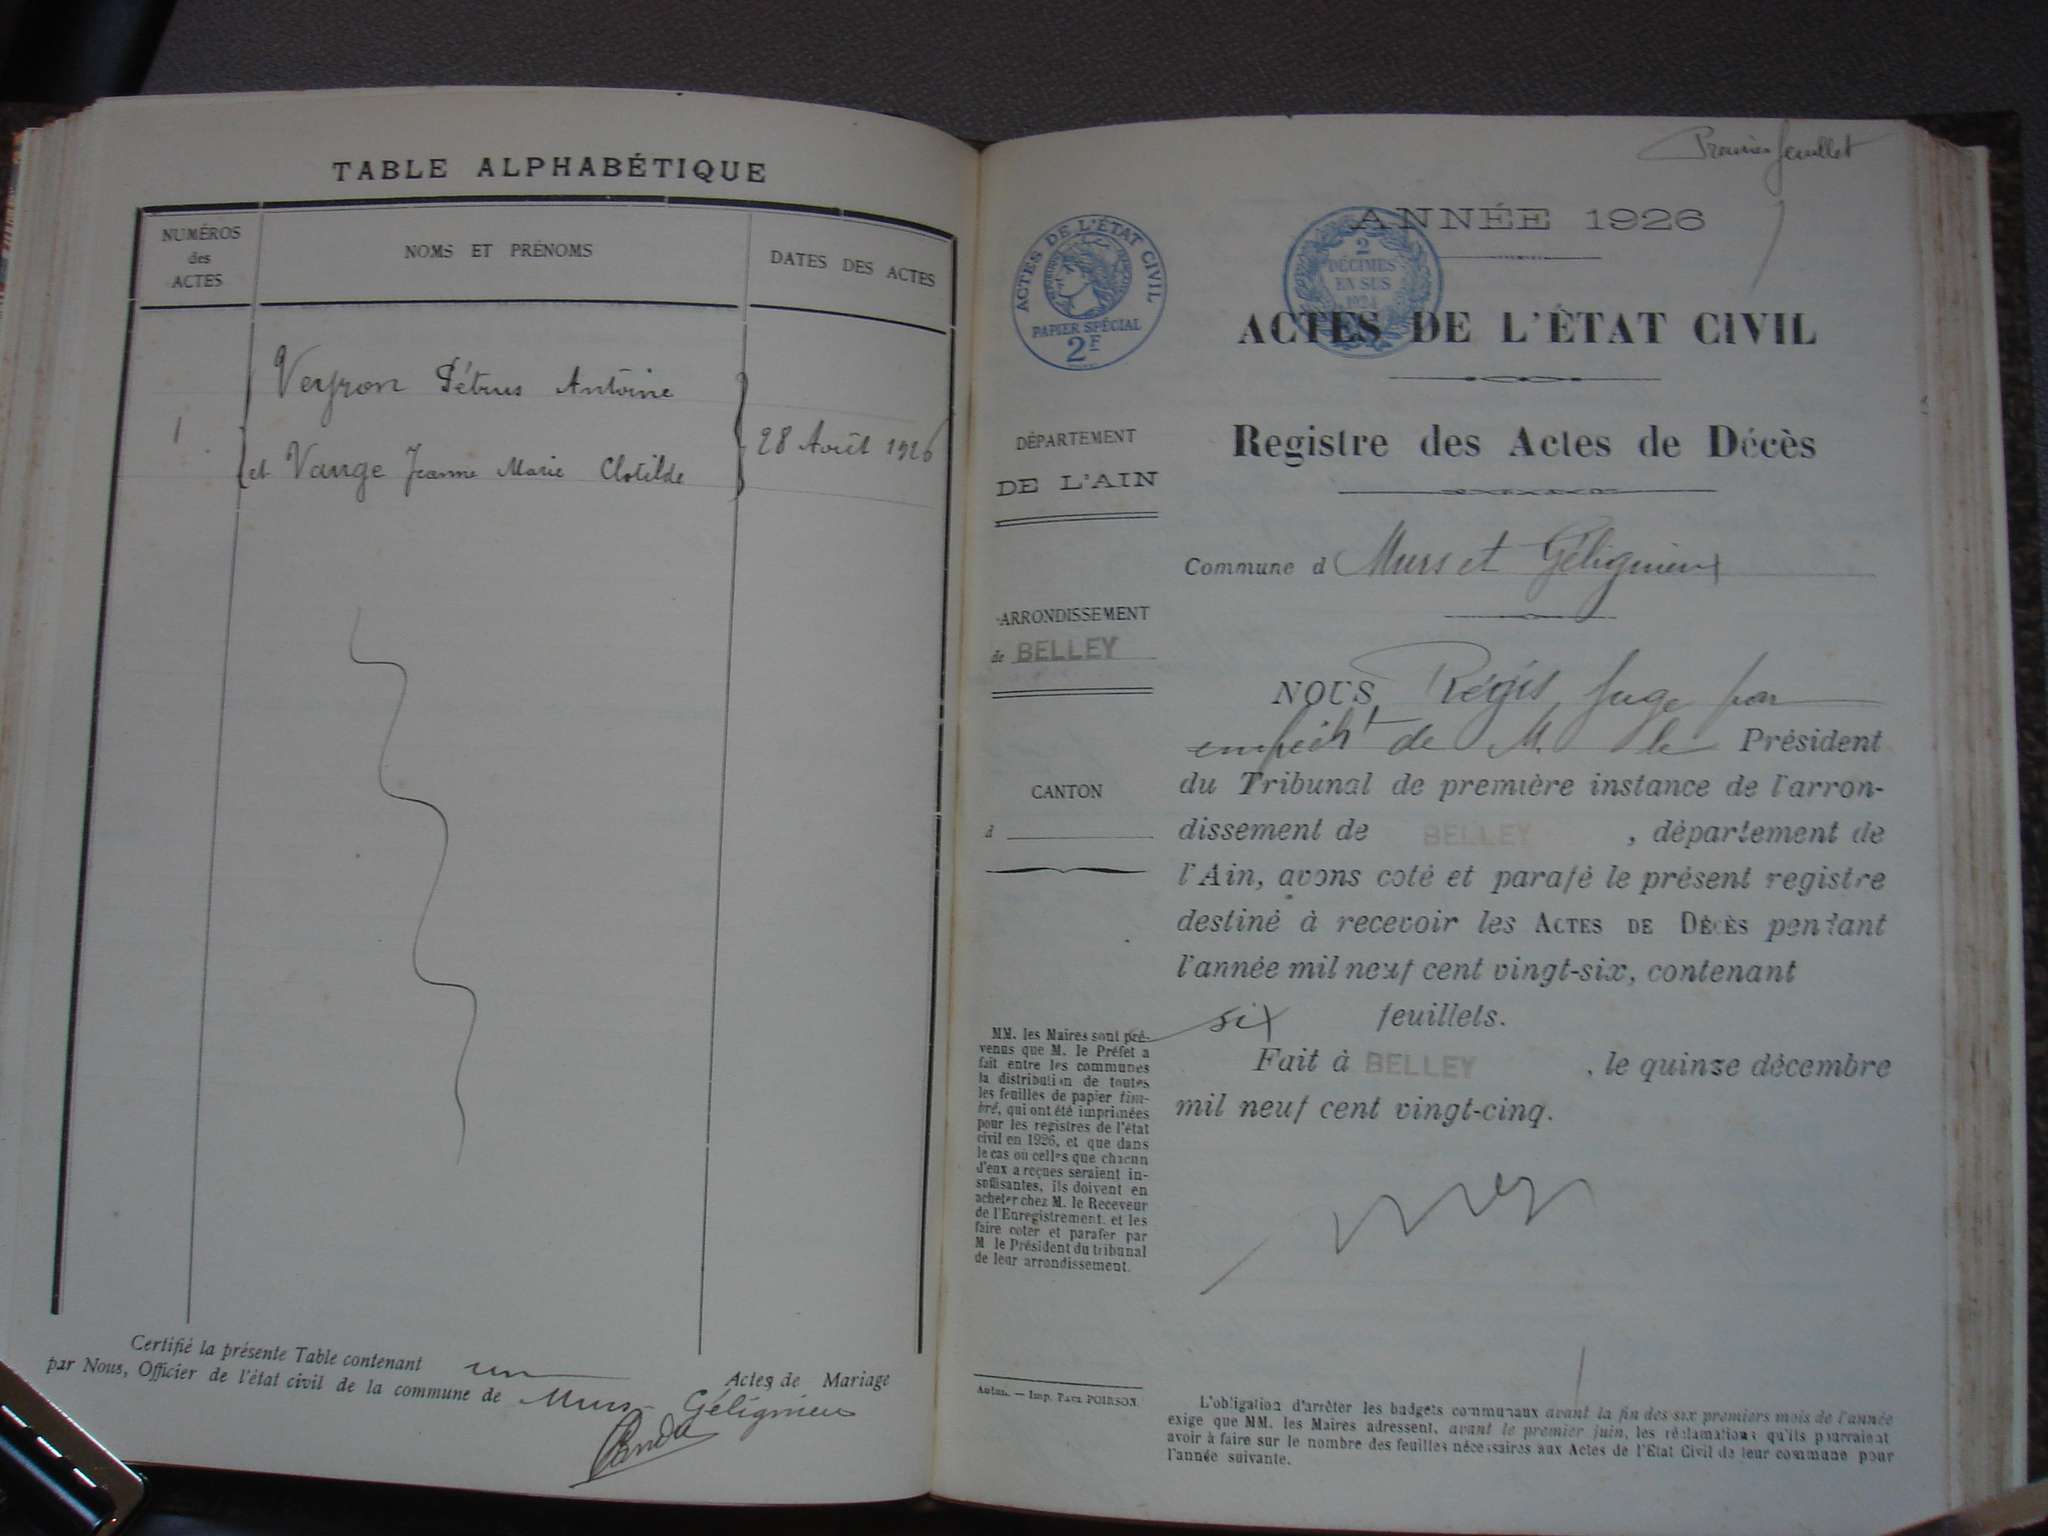 TABLE ALPHABÉTIQUE
NUMÉROS
des
ACTES
NOMS ET PRÉNOMS
DATES DES ACTES
Veyron Pétrus Antoine
1
et Vange Jeanne Marie Clotilde
28 Août 1926
Certifié la présente Table contenant un Actes de Mariage
par Nous, Officier de l'état civil de la commune de Murs-Gélignieux
Premier feuillet
ANNÉE 1926
ACTES DE L'ÉTAT CIVIL
PAPIER SPÉCIAL
2F
2
DÉCIMES
EN SUS
1924
ACTES DE L'ÉTAT CIVIL
Registre des Actes de Décès
DÉPARTEMENT
DE L'AIN
Commune d Murs et Gélignieux
ARRONDISSEMENT
de BELLEY
CANTON
d
NOUS, Régis Juge par
empêcht de M. le Président
du Tribunal de première instance de l'arron-
dissement de BELLEY, département de
l'Ain, avons coté et parafé le présent registre
destiné à recevoir les ACTES DE DÉCÈS pendant
l'année mil neuf cent vingt-six, contenant
six feuillets.
Fait à BELLEY, le quinze décembre
mil neuf cent vingt-cinq.
MM. les Maires sont pré-
venus que M. le Préfet a
fait entre les communes
la distribution de toutes
les feuilles de papier tim-
bré, qui ont été imprimées
pour les registres de l'état
civil en 1926, et que dans
le cas où celles que chacun
d'eux a reçues seraient in-
suffisantes, ils doivent en
acheter chez M. le Receveur
de l'Enregistrement. et les
faire coter et parafer par
M. le Président du tribunal
de leur arrondissement.
Autun. — Imp. Paul POIRSON.
L'obligation d'arrêter les budgets communaux avant la fin des six premiers mois de l'année
exige que MM. les Maires adressent, avant le premier juin, les réclamations qu'ils pourraient
avoir à faire sur le nombre des feuilles nécessaires aux Actes de l'Etat Civil de leur commune pour
l'année suivante.